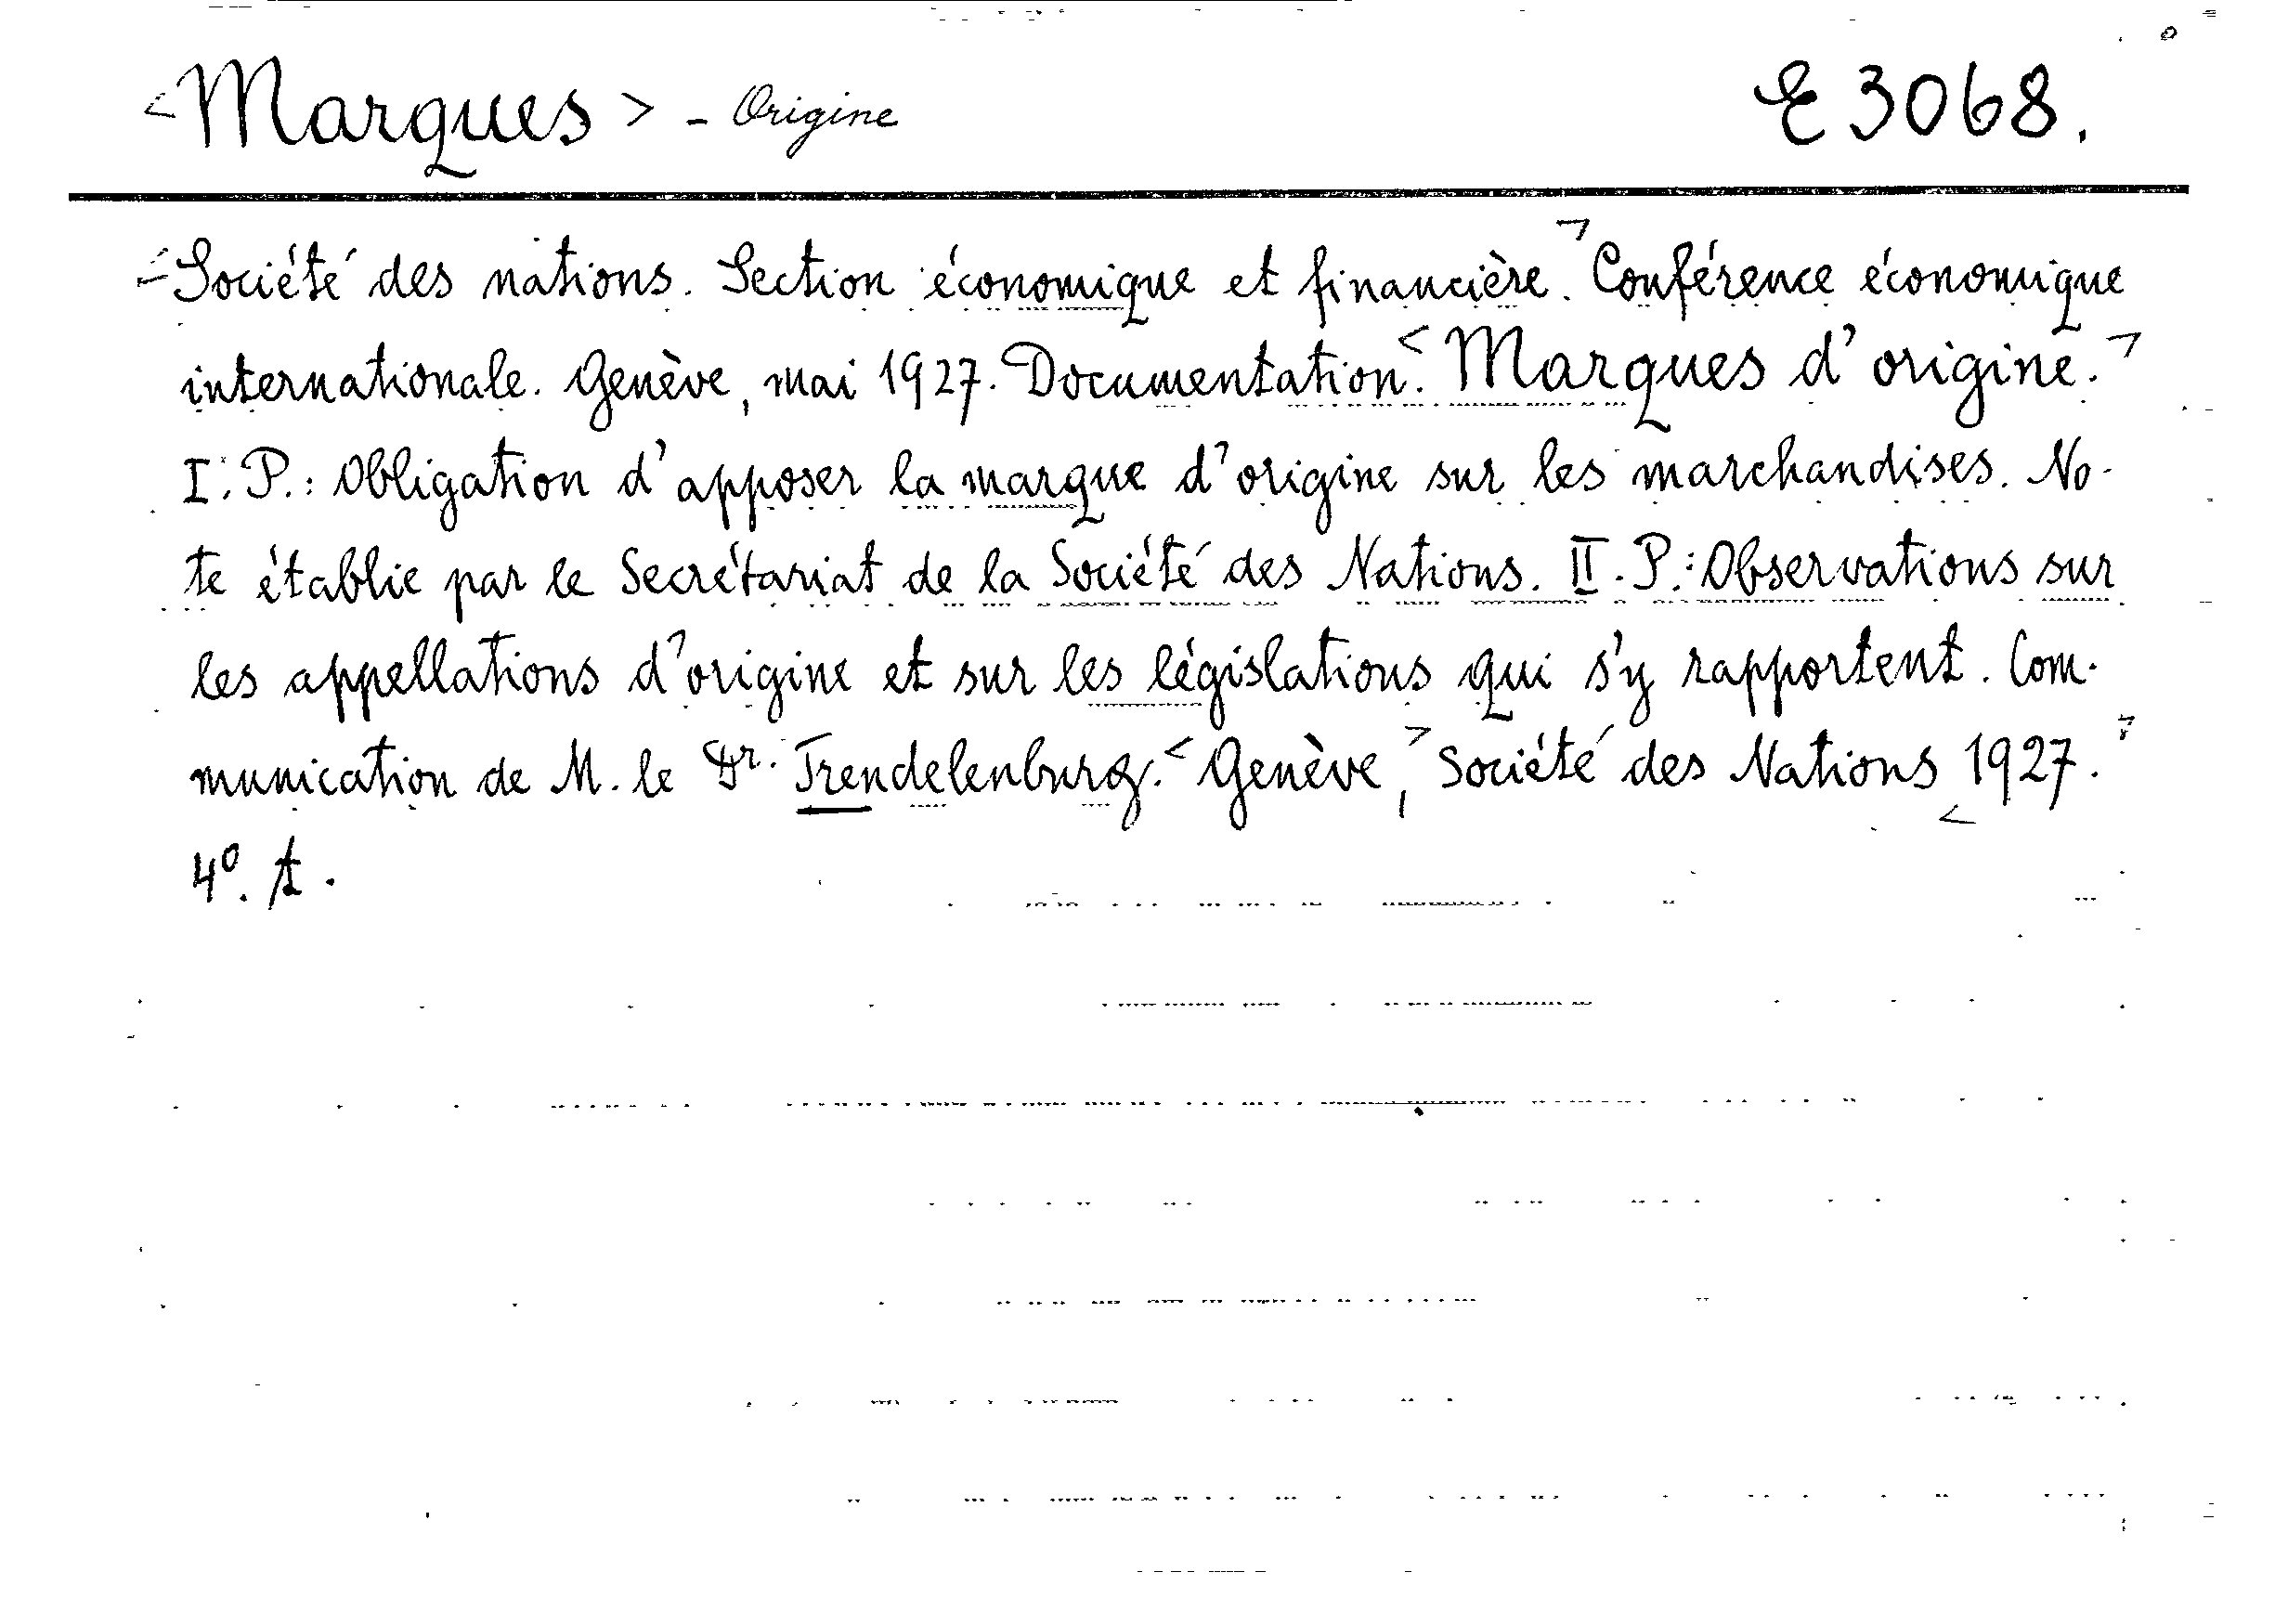 <Marques> - Origine E 3068.
<Société des nations. Section économique et financière.> Conférence économique
internationale. Genève, mai 1927. Documentation. <Marques d'origine.>
I. P.: Obligation d'apposer la marque d'origine sur les marchandises. No-
te établie par le Secrétariat de la Société des Nations. II. P.: Observations sur
les appellations d'origine et sur les législations qui s'y rapportent. Com-
munication de M. le Dr. Trendelenburg. <Genève,> Société des Nations <1927.>
4º.